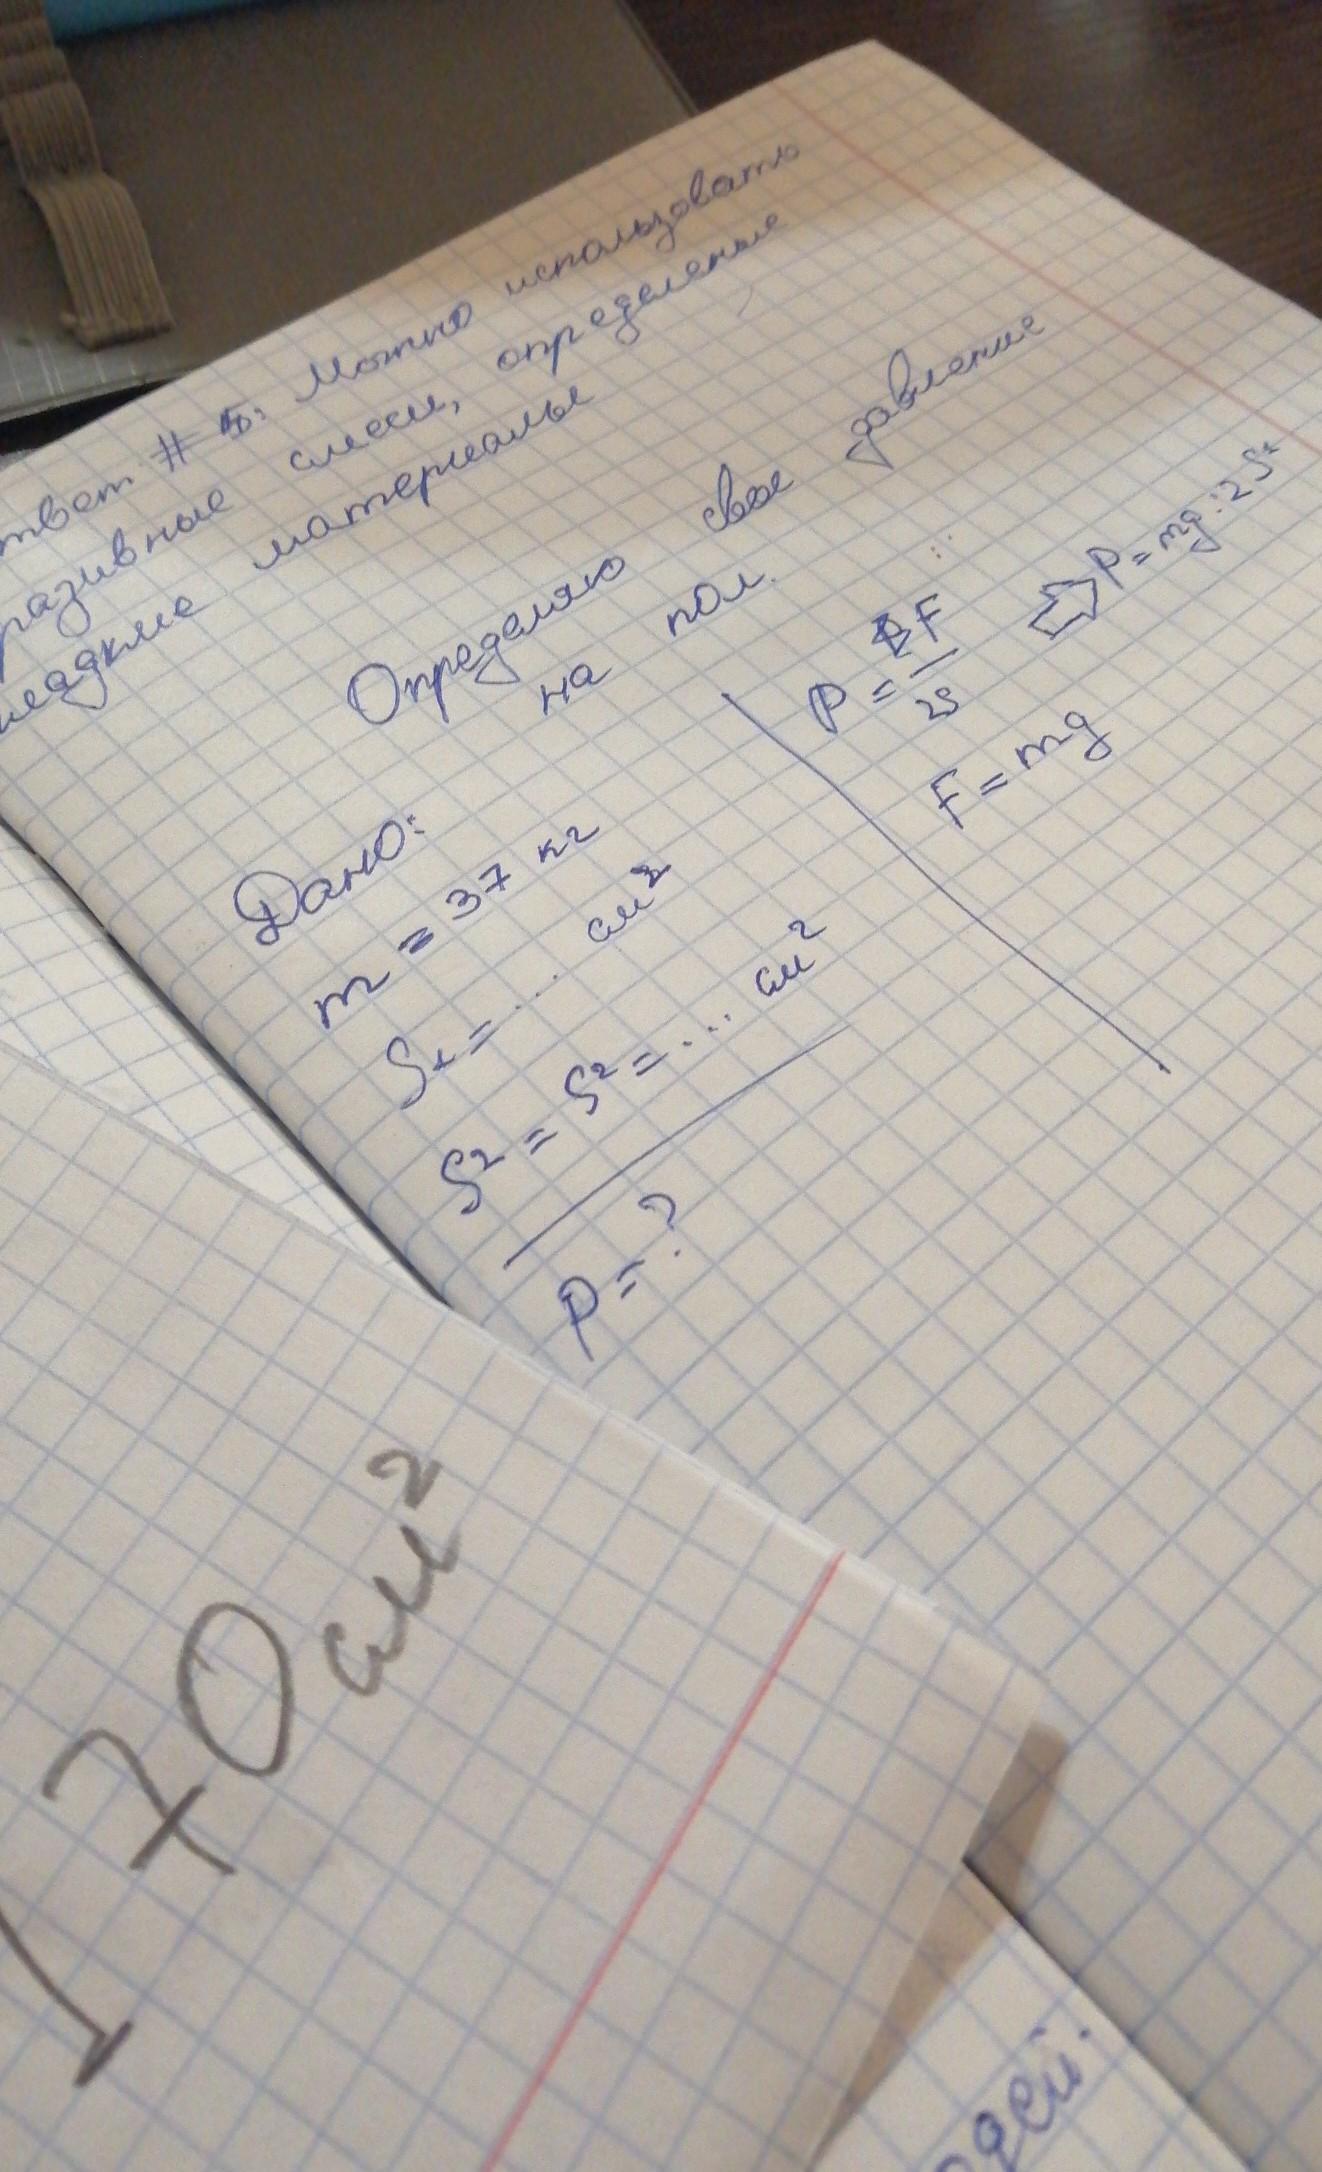 твет # 5: Можно использовать
разивные смеси, определеные
материалы
Определяю свое давление
на пол.
Дано:
m = 37 кг
S₁ = ... см²
S² = S² = ... см²
P = ?
P = F/2S ⇨ P = mg : 2S₁
F = mg
170 см²
дей.